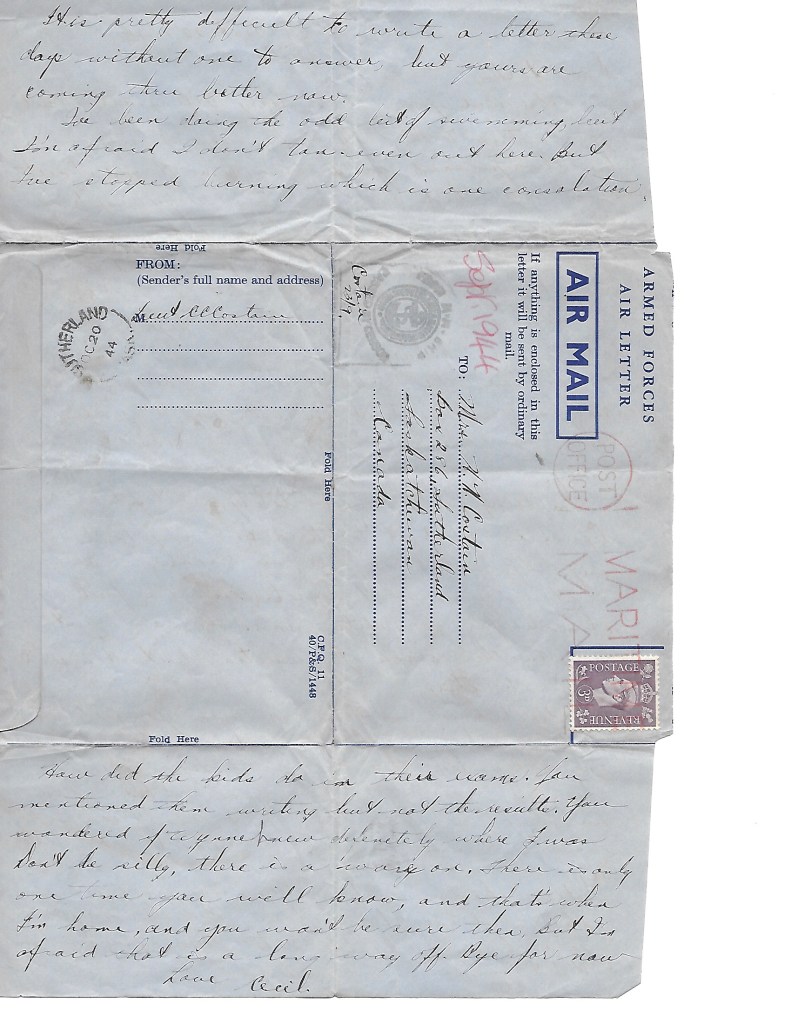 It is pretty difficult to write a letter these
days without one to answer, but yours are
coming thru better now.
I've been doing the odd bit of swimming, but
I'm afraid I don't tan even out here. But
I've stopped burning which is one consolation.
Fold Here
FROM:
(Sender's full name and address)
M Lieut C C Costain
SUTHERLAND
OC 20
44
Fold Here
C.F.Q. 11
40/P&S/1448
Fold Here
ARMED FORCES
AIR LETTER
AIR MAIL
If anything is enclosed in this
letter it will be sent by ordinary
mail.
Sept 1944
Costain
23/9
TO: Mrs. H N Costain
Box 286, Sutherland
Saskatchewan
Canada
POST
OFFICE
MARIT
MA
POSTAGE
3D
REVENUE
How did the kids do in their exams. You
mentioned them writing but not the results. You
wondered if knew definitely where I was
Don't be silly, there is a war on. There is only
one time you will know, and that's when
I'm home, and you won't be sure then, but I'm
afraid that is a long way off. Bye for now
Love Cecil.